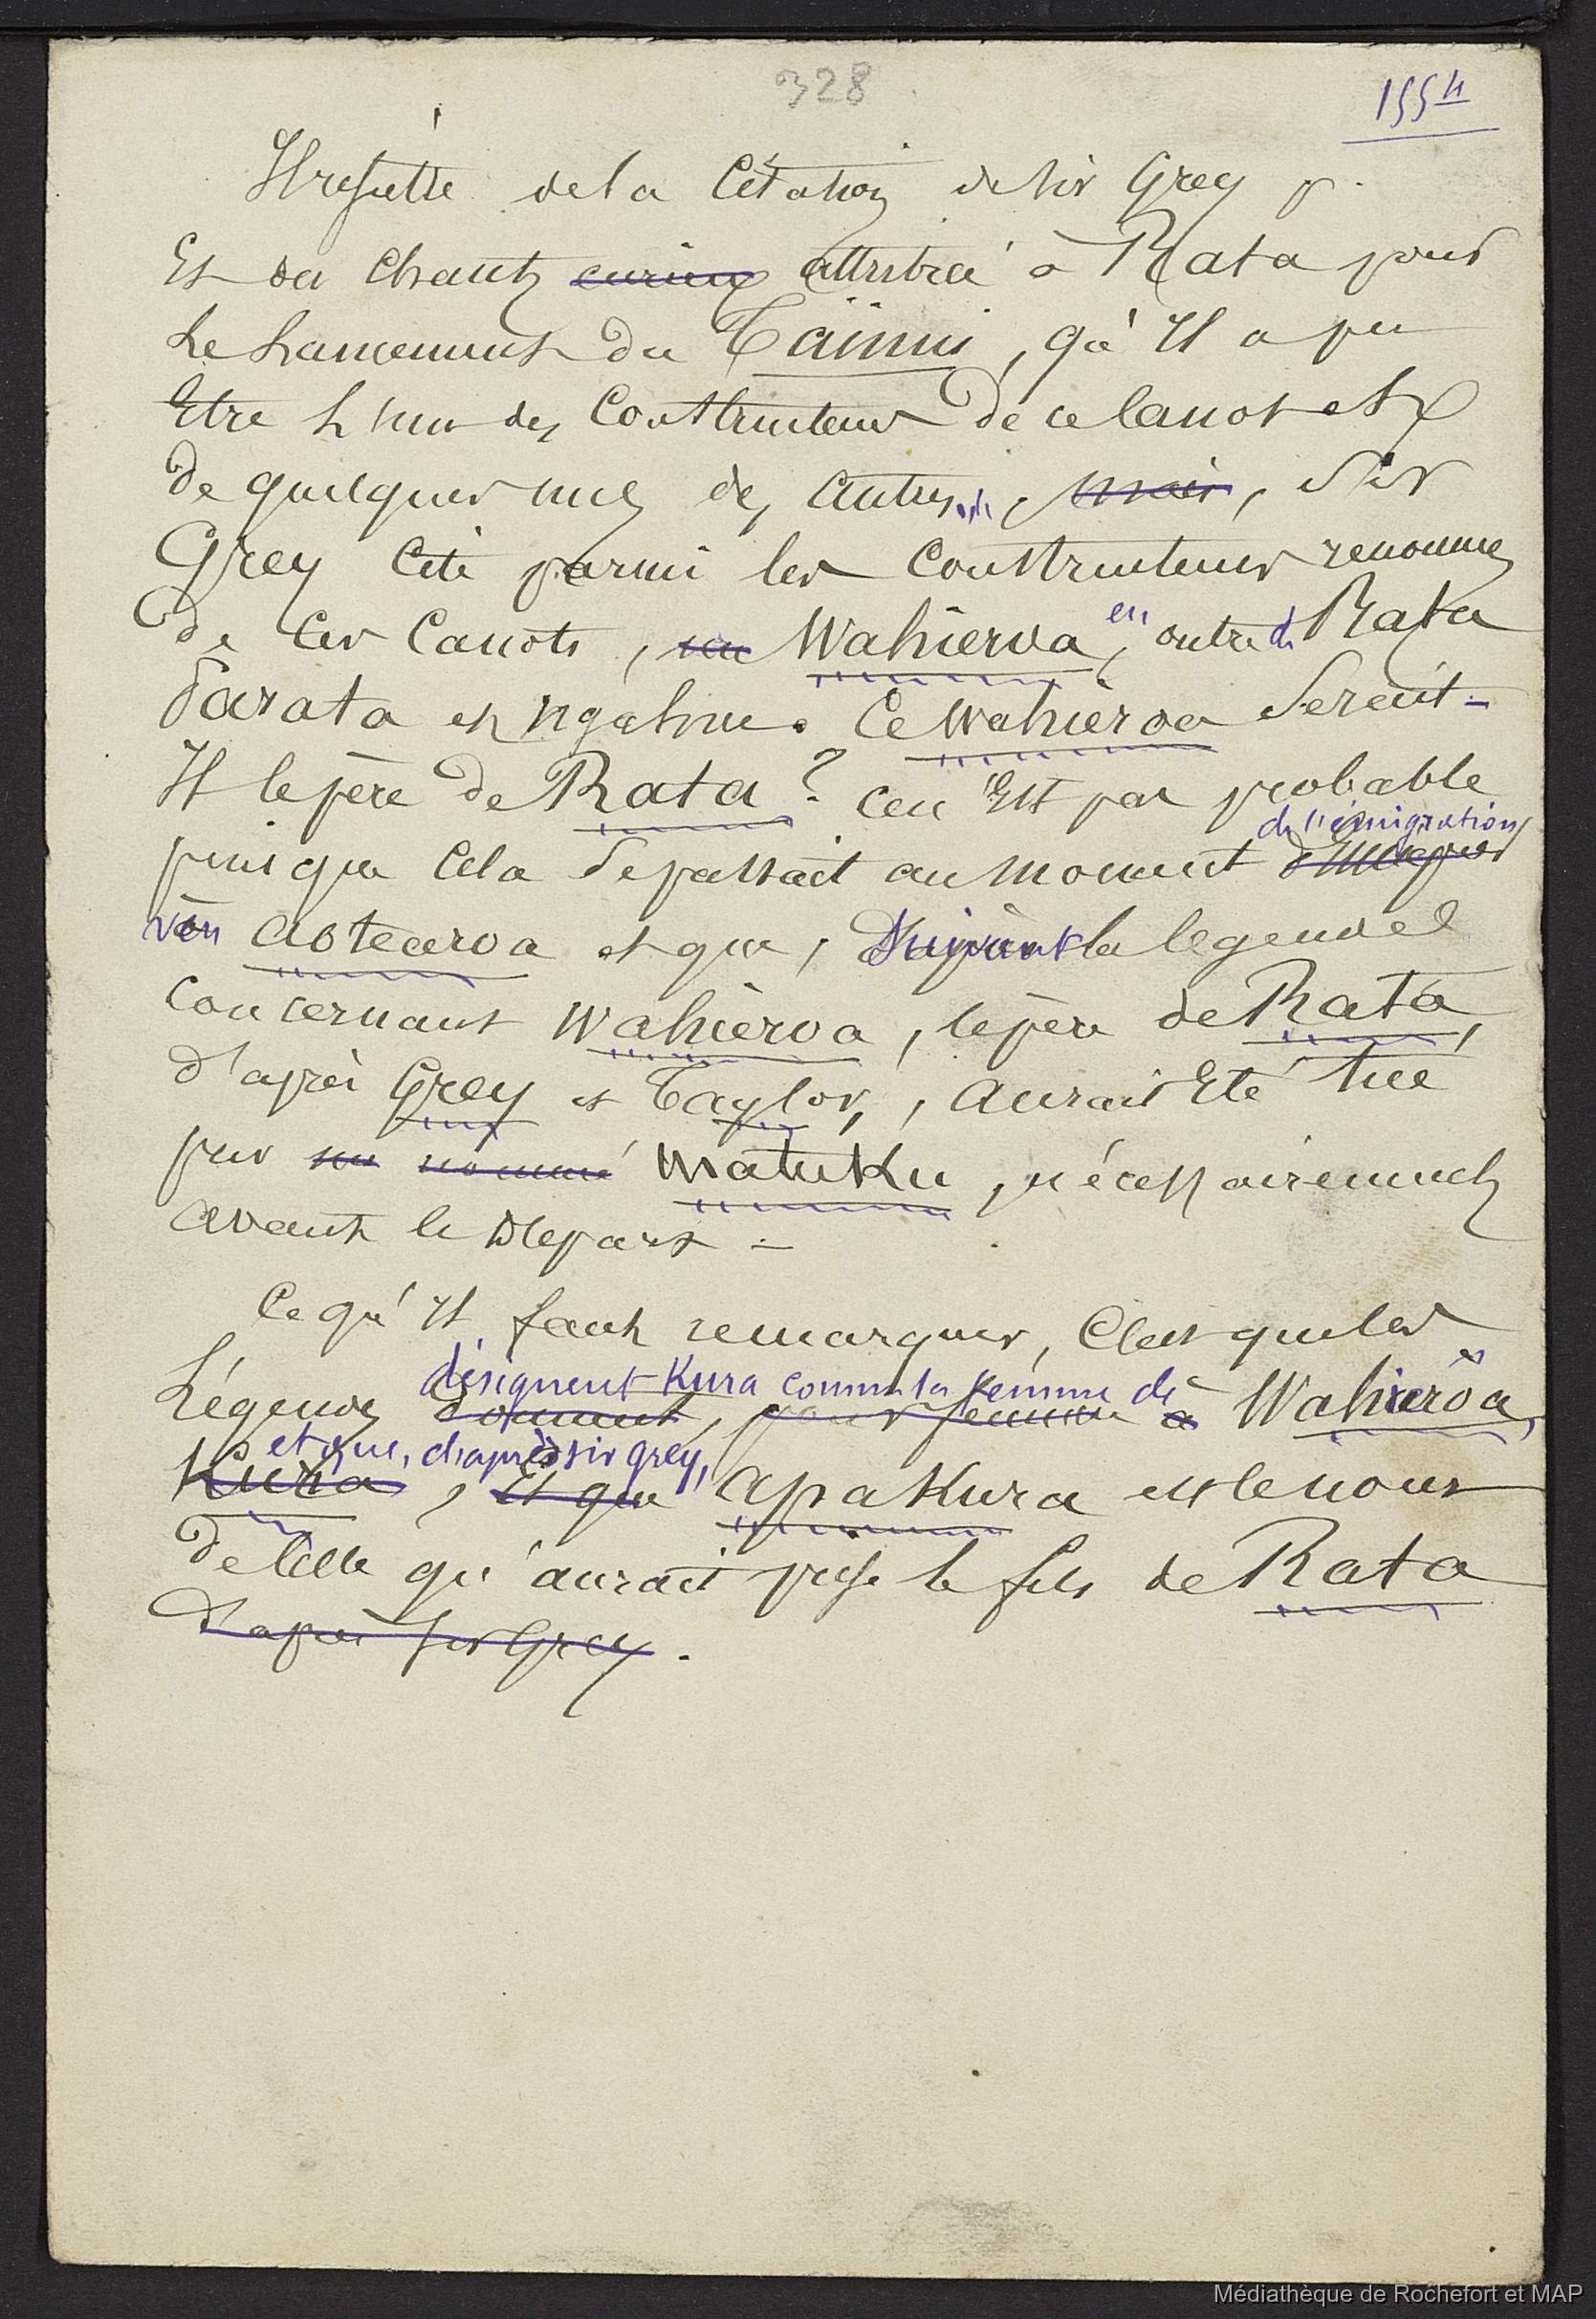 328
155 4
Il resulte de la Citation de Sir Grey p.
Et du Chant curieux attribué à Rata pour
Le Lancement du Taïnui, qu'Il a pu
Etre L'un des Constructeurs de ce Canot et
de quelques uns des autres, mais, Sir
Grey Cite parmi les Constructeurs renommés
de Ces Canots, un Wahieroa, en outre de Rata
Parata et ngahue. Ce Wahieroa Serait-
Il le père de Rata ? Ceci n'Est pas probable
puisque Cela Se passait au moment de l'émigration
vers aotearoa et que, Suivant la legende
Concernant Wahieroa, le père de Rata,
d'après Grey et Taylor, aurait Eté tué
par un nommé Matuku, nécessairement
avant le Depart -
Ce qu'Il faut remarquer, C'est que les
Légendes donnent, pour femme à désignent Kura comme la femme de Wahieroa,
Kura, Et que et que, d'après sir grey, apakura est le nom
de Celle qu'aurait prise le fils de Rata
D'après Sir Grey.
Médiathèque de Rochefort et MAP